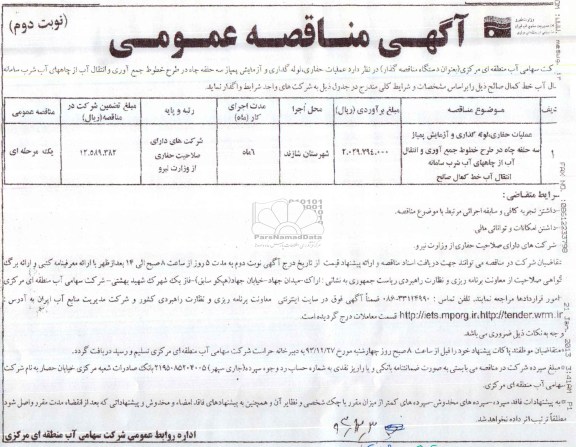 (نوبت دوم)
آگهی مناقصه عمومی
کت سهامی آب منطقه ای مرکزی(بعنوان دستگاه مناقصه گذار) در نظر دارد عملیات حفاری،لوله گذاری و آزمایش پمپاژ سه حلقه چاه در طرح خطوط جمع آوری وانتقال آب از چاههای آب شرب سامانه
ال آب خط کمال صالح ذیل را براساس مشخصات و شرایط کلی مندرج در جدول ذیل به شرکت های واجد شرایط واگذار نماید.
ردیف
موضوع مناقصه
مبلغ برآوردی (ریال)
محل اجرا
مدت اجرای کار (ماه)
رتبه و پایه
مبلغ تضمین شرکت در مناقصه(ریال)
مناقصه عمومی
۱
عملیات حفاری،لوله گذاری و آزمایش پمپاژ
سه حلقه چاه در طرح خطوط جمع آوری و انتقال
آب از چاههای آب شرب سامانه
انتقال آب خط کمال صالح
۲،۰۲۹،۲۹۴،۰۰۰
شهرستان شازند
۶ماه
شرکت های دارای
صلاحیت حفاری
از وزارت نیرو
۱۲،۵۸۹،۳۸۲
یک مرحله ای
ParsNamadData
شرایط متقاضی:
-داشتن تجربه کافی و سابقه اجرائی مرتبط با موضوع مناقصه.
-داشتن امکانات و توانائی مالی
شرکت های دارای صلاحیت حفاری از وزارت نیرو.
تقاضیان شرکت در مناقصه می توانند جهت دریافت اسناد مناقصه و ارائه پیشنهاد قیمت از تاریخ درج آگهی نوبت دوم به مدت ۵ روز از ساعت ۸ صبح الی ۱۴ بعدازظهر با ارائه معرفینامه کتبی و ارائه برگ
گواهی صلاحیت از معاونت برنامه ریزی و نظارت راهبردی ریاست جمهوری به نشانی : اراک-میدان جهاد-خیابان جهاد(هپکو سابق)-فاز یک شهرک شهید بهشتی- شرکت سهامی آب منطقه ای مرکزی
امور قراردادها مراجعه نمایند. تلفن تماس : ۳۳۱۲۴۹۹۰-۰۸۶ ضمناً آگهی فوق در سایت اینترنتی معاونت برنامه ریزی و نظارت راهبردی کشور و شرکت مدیریت منابع آب ایران به آدرس :
http://iets.mporg.ir،http://tender.wrm.ir قسمت معاملات درج گردیده است.
وجه به نکات ذیل ضروری می باشد.
متقاضیان موظفند پاکات پیشنهاد خود را قبل از ساعت ۸ صبح روز چهارشنبه مورخ ۹۳/۱۱/۲۷ به دبیرخانه حراست شرکت سهامی آب منطقه ای مرکزی تسلیم و رسید دریافت گردد.
مبلغ سپرده شرکت در مناقصه می بایستی به صورت ضمانتنامه بانکی و یا واریز نقدی به شماره حساب رد وجوه سپرده(جاری سپهر)
بانک صادرات شعبه مرکزی خیابان حصار به نام شرکت
سهامی آب منطقه ای مرکزی.
به پیشنهادات فاقد سپرده-سپرده های مخدوش-سپرده های کمتر از میزان مقرر یا چک شخصی و نظایر آن و همچنین به پیشنهادهای فاقد امضاء و مخدوش و پیشنهاداتی که بعد از انقضاء مدت مقرر واصل شود
مطلقاً ترتیب اثر داده نخواهد شد.
اداره روابط عمومی شرکت سهامی آب منطقه ای مرکزی